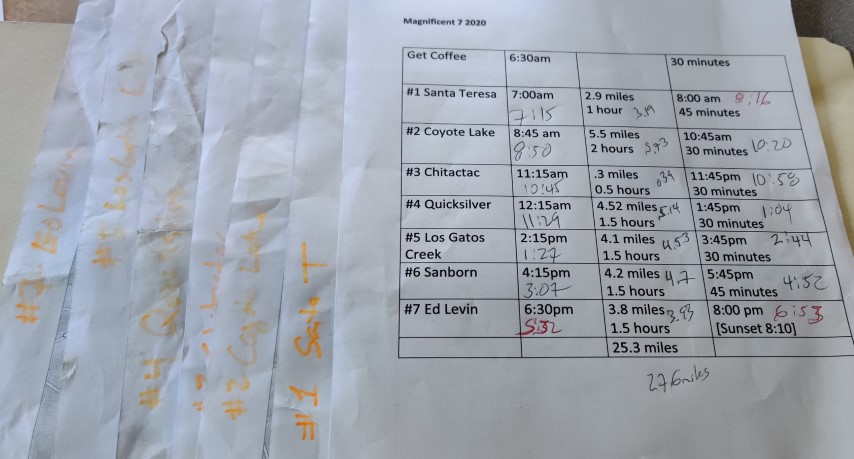 Magnificent 7 2020
Get Coffee 6:30am 30 minutes
#1 Santa Teresa 7:00am 2.9 miles 8:00 am 8:16
7:15 1 hour 3.19 45 minutes
#2 Coyote Lake 8:45 am 5.5 miles 10:45am
8:50 2 hours 30 minutes 10:20
#3 Chitactac 11:15am .3 miles .39 11:45pm 10:58
10:45 0.5 hours 30 minutes
#4 Quicksilver 12:15am 4.52 miles 5.14 1:45pm 1:04
11:29 1.5 hours 30 minutes
#5 Los Gatos 2:15pm 4.1 miles 4.53 3:45pm 2:44
Creek 1:27 1.5 hours 30 minutes
#6 Sanborn 4:15pm 4.2 miles 4.7 5:45pm 4:52
3:07 1.5 hours 45 minutes
#7 Ed Levin 6:30pm 3.8 miles 3.93 8:00 pm 6:53
5:32 1.5 hours [Sunset 8:10]
25.3 miles
27.6 miles
#1 Santa T
#2 Coyote
#4
#5 Los Gatos
#7 Levin